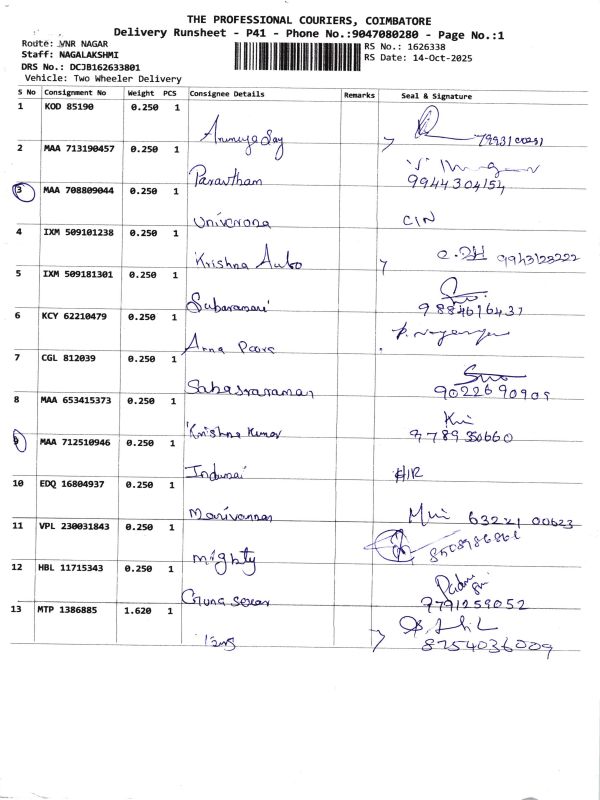 THE PROFESSIONAL COURIERS, COIMBATORE
Delivery Runsheet - P41 - Phone No.:9047080280 - Page No.:1
Route: VNR NAGAR
RS No.: 1626338
Staff: NAGALAKSHMI
RS Date: 14-Oct-2025
DRS No.: DCJB162633801
Vehicle: Two Wheeler Delivery
S No Consignment No Weight PCS Consignee Details Remarks Seal & Signature
1 KOD 85190 0.250 1
2 MAA 713190457 0.250 1 Paravtham 9944304154
3 MAA 708809044 0.250 1 Univcrona C/N
4 IXM 509101238 0.250 1 Krishna Auto 9943128222
5 IXM 509181301 0.250 1 Sabaranari 9884616437
6 KCY 62210479 0.250 1 Anna Poora
7 CGL 812039 0.250 1 Sabasraraman 9022690909
8 MAA 653415373 0.250 1 Krishna Kumar
9 MAA 712510946 0.250 1 Indumai
10 EDQ 16804937 0.250 1 Manivannan 63221 00623
11 VPL 230031843 0.250 1 Mighty
12 HBL 11715343 0.250 1 Guna sekar 7791259052
13 MTP 1386885 1.620 1 8754036009